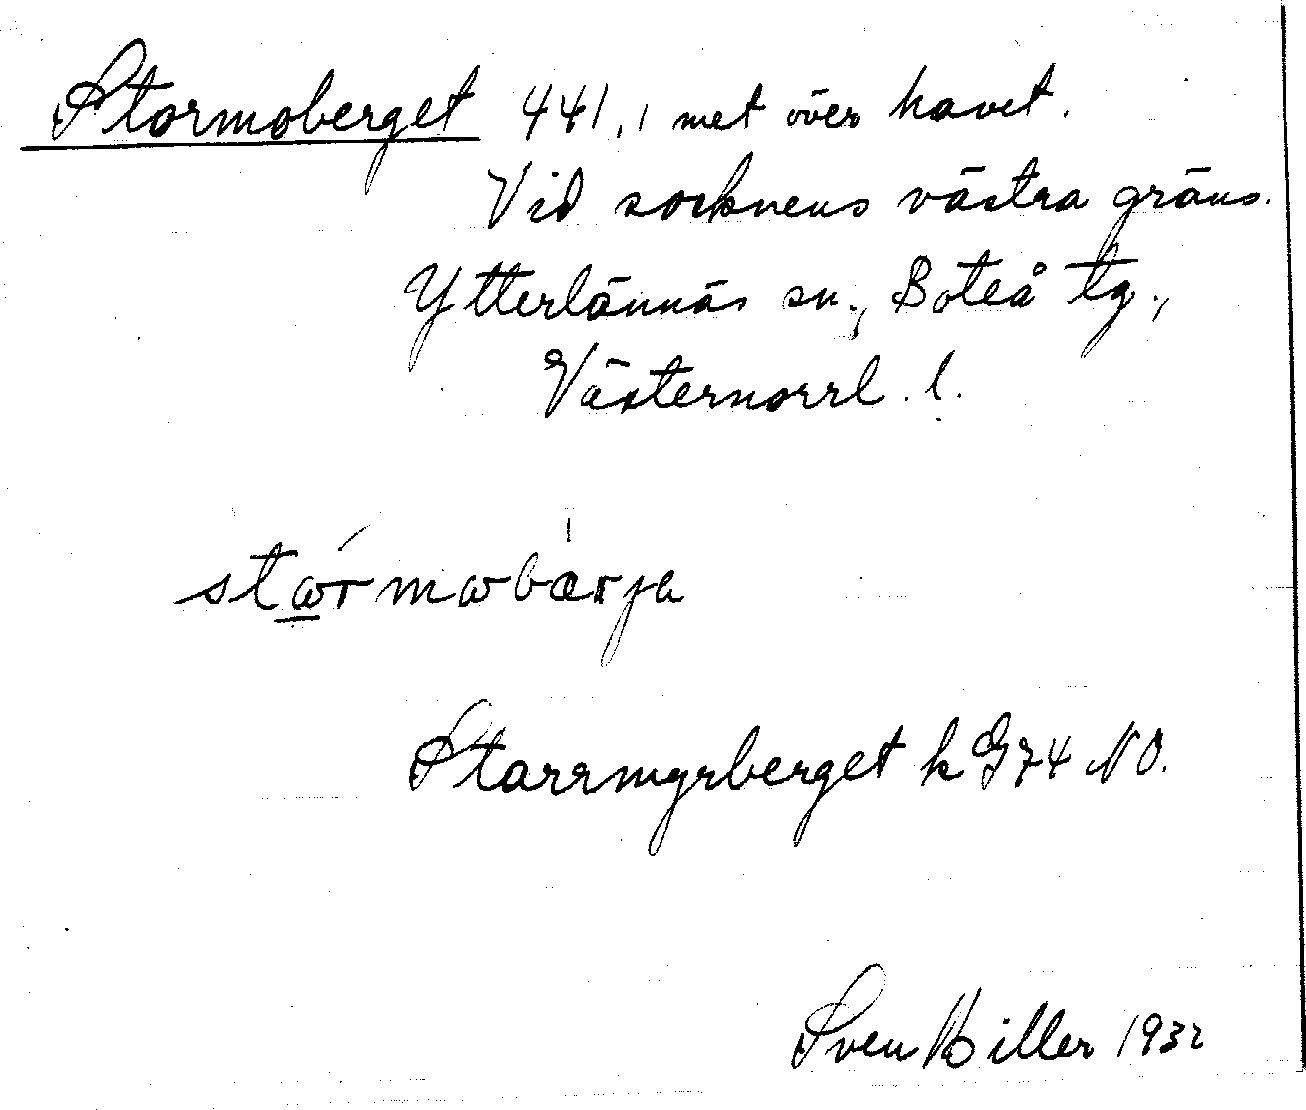 Stormoberget 441,1 met över havet.
Vid socknens västra gräns.
Ytterlännäs sn., Boteå tg.,
Västernorrl. l.
stɷrmɷbærja
Starrmyrberget k G74 NO.
Sven Hiller 1932